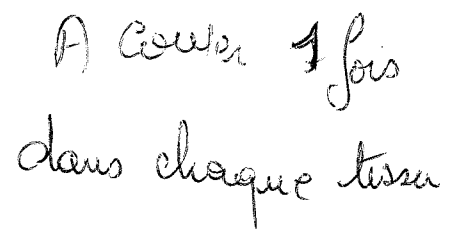 A Couper 1 fois
dans chaque tissu